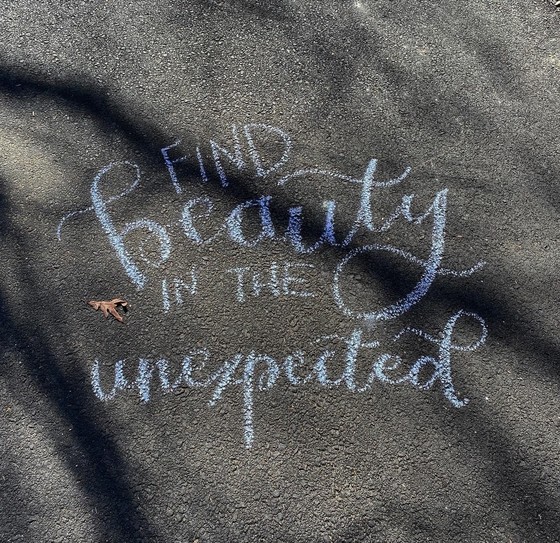 FIND
beauty
IN THE
unexpected